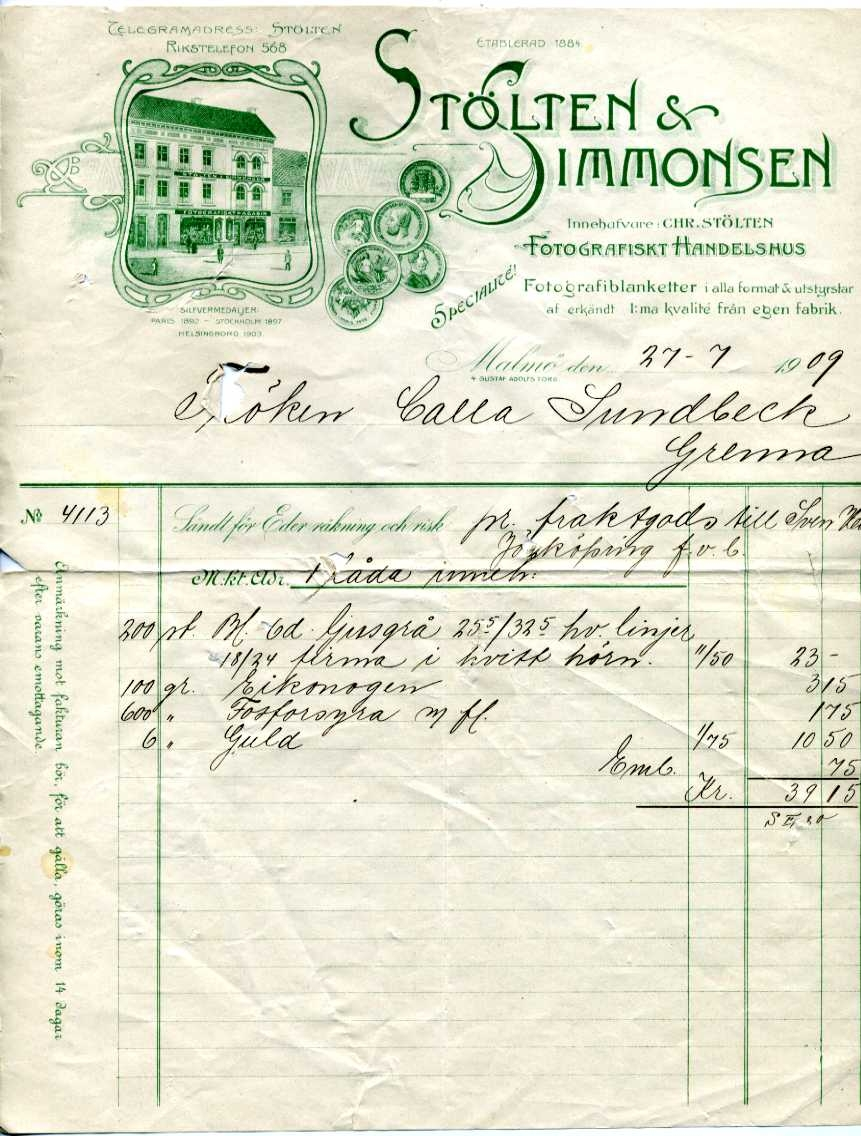 TELEGRAMADRESS: STÖLTEN
RIKSTELEFON 568
ETABLERAD 1884
STÖLTEN &
SIMMONSEN
STÖLTEN & SIMMONSEN
FOTOGRAFISKT MAGASIN
Innehafvare: CHR. STÖLTEN
FOTOGRAFISKT HANDELSHUS
SPECIALITÉ!
Fotografiblanketter i alla format & utstyrslar
af erkändt 1:ma kvalité från egen fabrik.
SILFVERMEDALJER:
PARIS 1892 - STOCKHOLM 1897
HELSINGBORG 1903
Malmö den 27-7 1909
4 GUSTAF ADOLFS TORG
Fröken Calla Sundbeck
Grenna
No 4113 Sändt för Eder räkning och risk pr. fraktgods till Sven
Jönköping f.v.b.
M.kt. Adr. 1 låda inneh:
200 st. Bl. 6d. ljusgrå 25⁵/32⁵ hv. linjer
18/24 firma i hvitt hörn. 11/50 23-
100 gr. Eikonogen 3 15
600 „ Fosforsyra m fl. 1 75
6 „ Guld 1/75 10 50
Emb. 75
Kr. 39 15
Anmärkning mot fakturan bör, för att gälla, göras inom 14 dagar
efter varans emottagande.